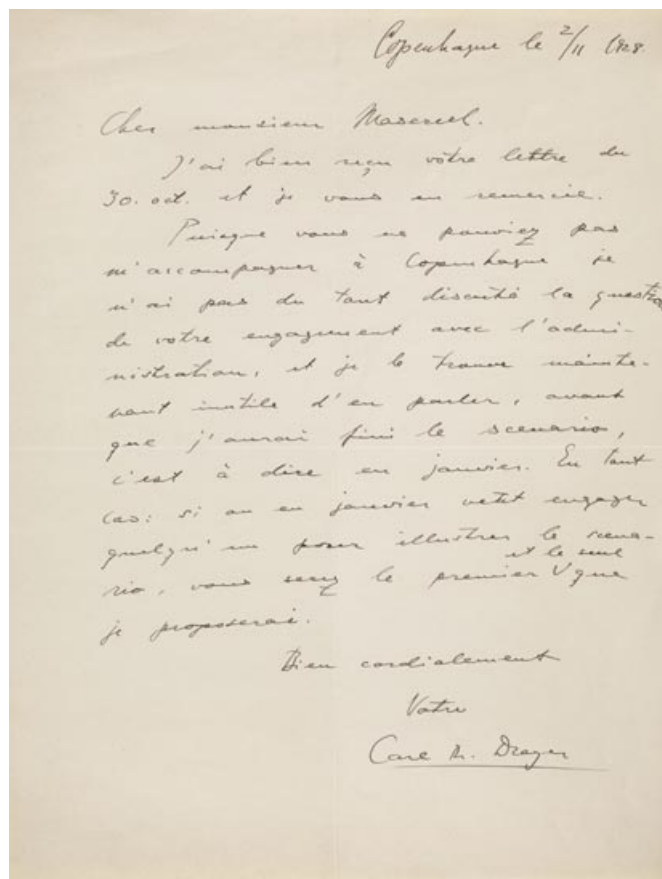 Copenhague le 2/11 1928.
Cher monsieur Masereel.
J'ai bien reçu vôtre lettre du
30. oct. et je vous en remercie.
Puisque vous ne pouviez pas
m'accompagner à Copenhague je
n'ai pas du tout discuté la question
de votre engagement avec l'admi-
nistration, et je le trouve mainte-
nant inutile d'en parler, avant
que j'aurai fini le scenario,
c'est à dire en janvier. En tout
cas: si on en janvier engager
quelqu'un pour illustrer le scena-
rio, vous serez le premier V que
et le seul
je proposerai.
Bien cordialement
Votre
Carl Th. Dreyer